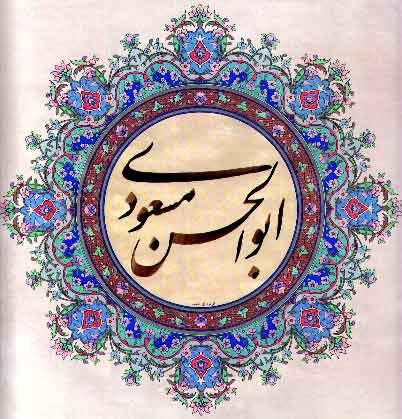 ابوالحسن مسعودی